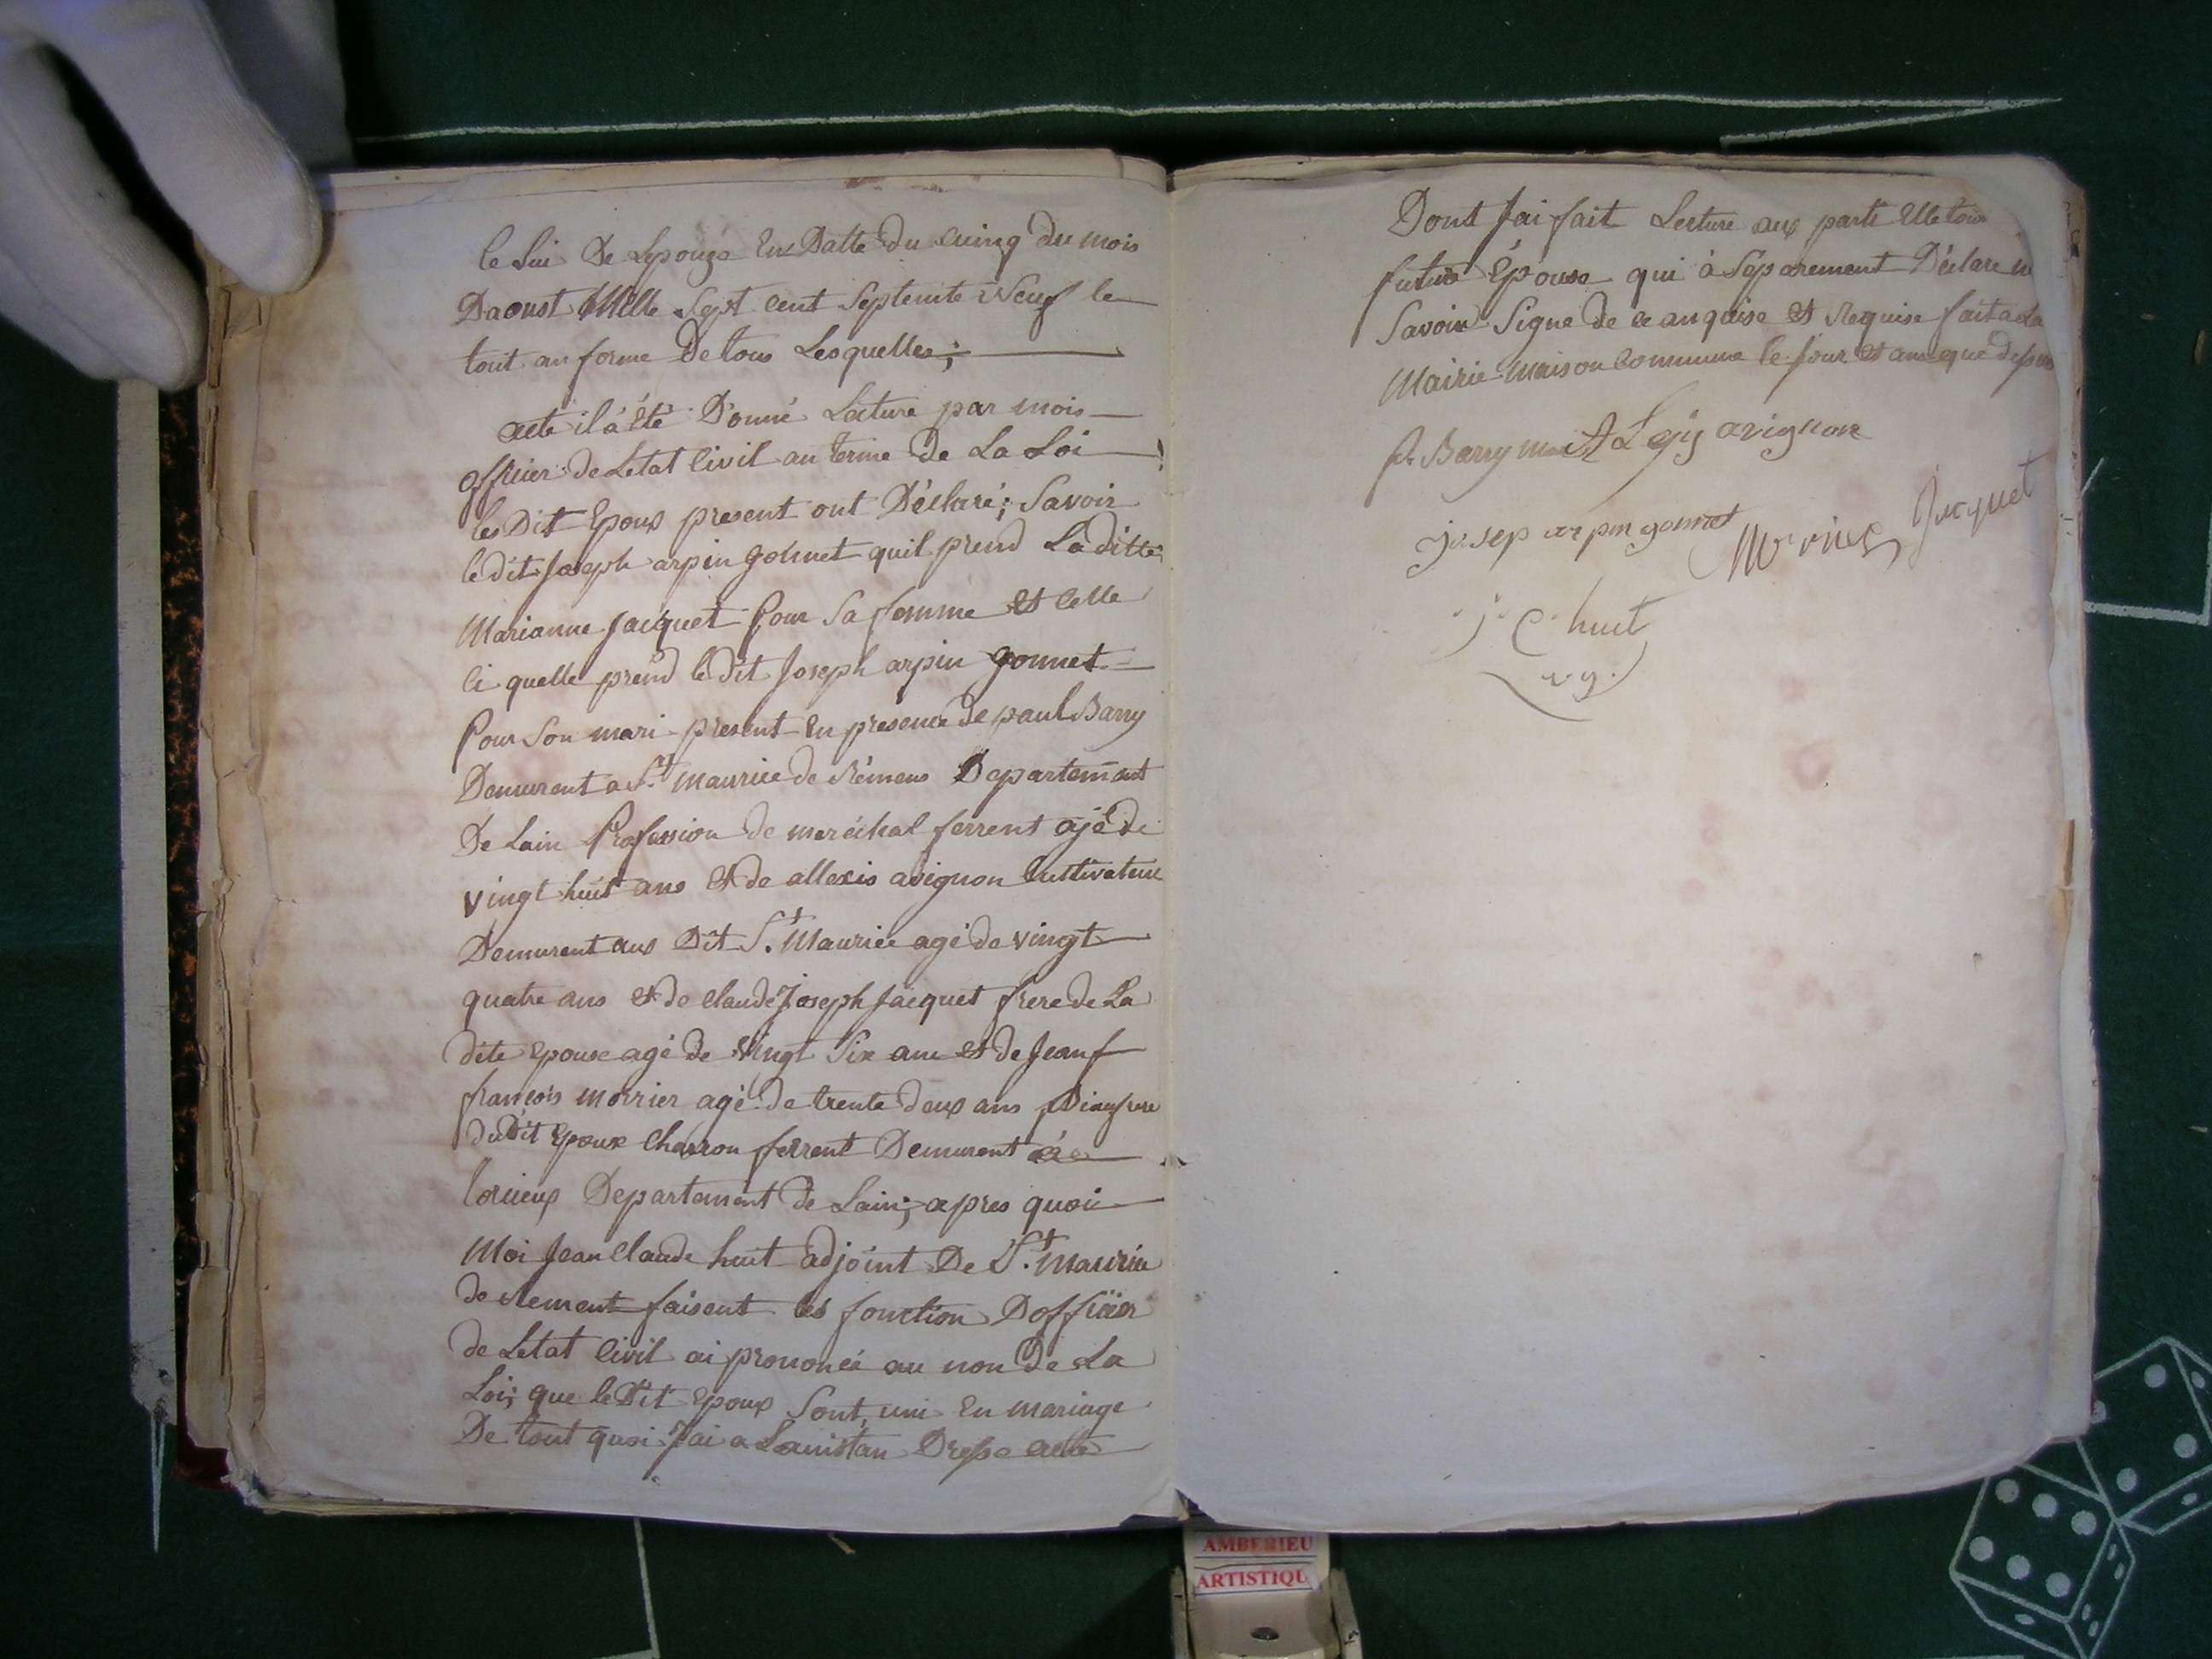 le lui De Lepouze En Datte du cuinq du mois
Daoust Mille Sept cent Septente Neuf le
tout an forme De tous Lesquelles;
acte il á été Donné Lecture par mois
officier de Letat Civil au terme de La Loi
les Dit Epoux present ont Déclaré; Savoir
le dit Joseph arpin gonnet quil prend La ditte
Marianne Jacquet Pour Sa femme et Celle
Ci quelle prend le dit Joseph arpin gonnet
Pour Son mari present En presence de paul Barry
Demurent a St. maurice de Rémens Departement
De Lain Profession de maréchal ferrent ajé de
vingt huit ans et de allexis avignon Cultivateur
Demurent aus Dit St. Maurice agé de vingt
quatre ans et de Claude Joseph Jacquet frere de La
dite Epouse agé de Vingt Six ans et de Jean f
françois morrier agé de trente deux ans
du Dit Epoux Charron ferrent Demurent á
lorieux Departement de Lain; apres quoi
Moi Jean Claude huit adjoint De St. Maurice
de Rement faisent les fonction Dofficier
de Letat Civil ai prononcé au non de La
Loi; que le Dit Epoux Sont uni En mariage
De tout quoi Jai a Lanistan Dressé acte
Dont Jai fait Lecture aux parti
future Epouse qui à Séparement Déclare
Savoir Signé de ce anquise et Requise fait a La
Mairie Maison Commune le Jour et ans que dessus
P. Barry avignon
josep arpin gonnet Jacquet
j. C. huit
AMBERIEU
ARTISTIQU